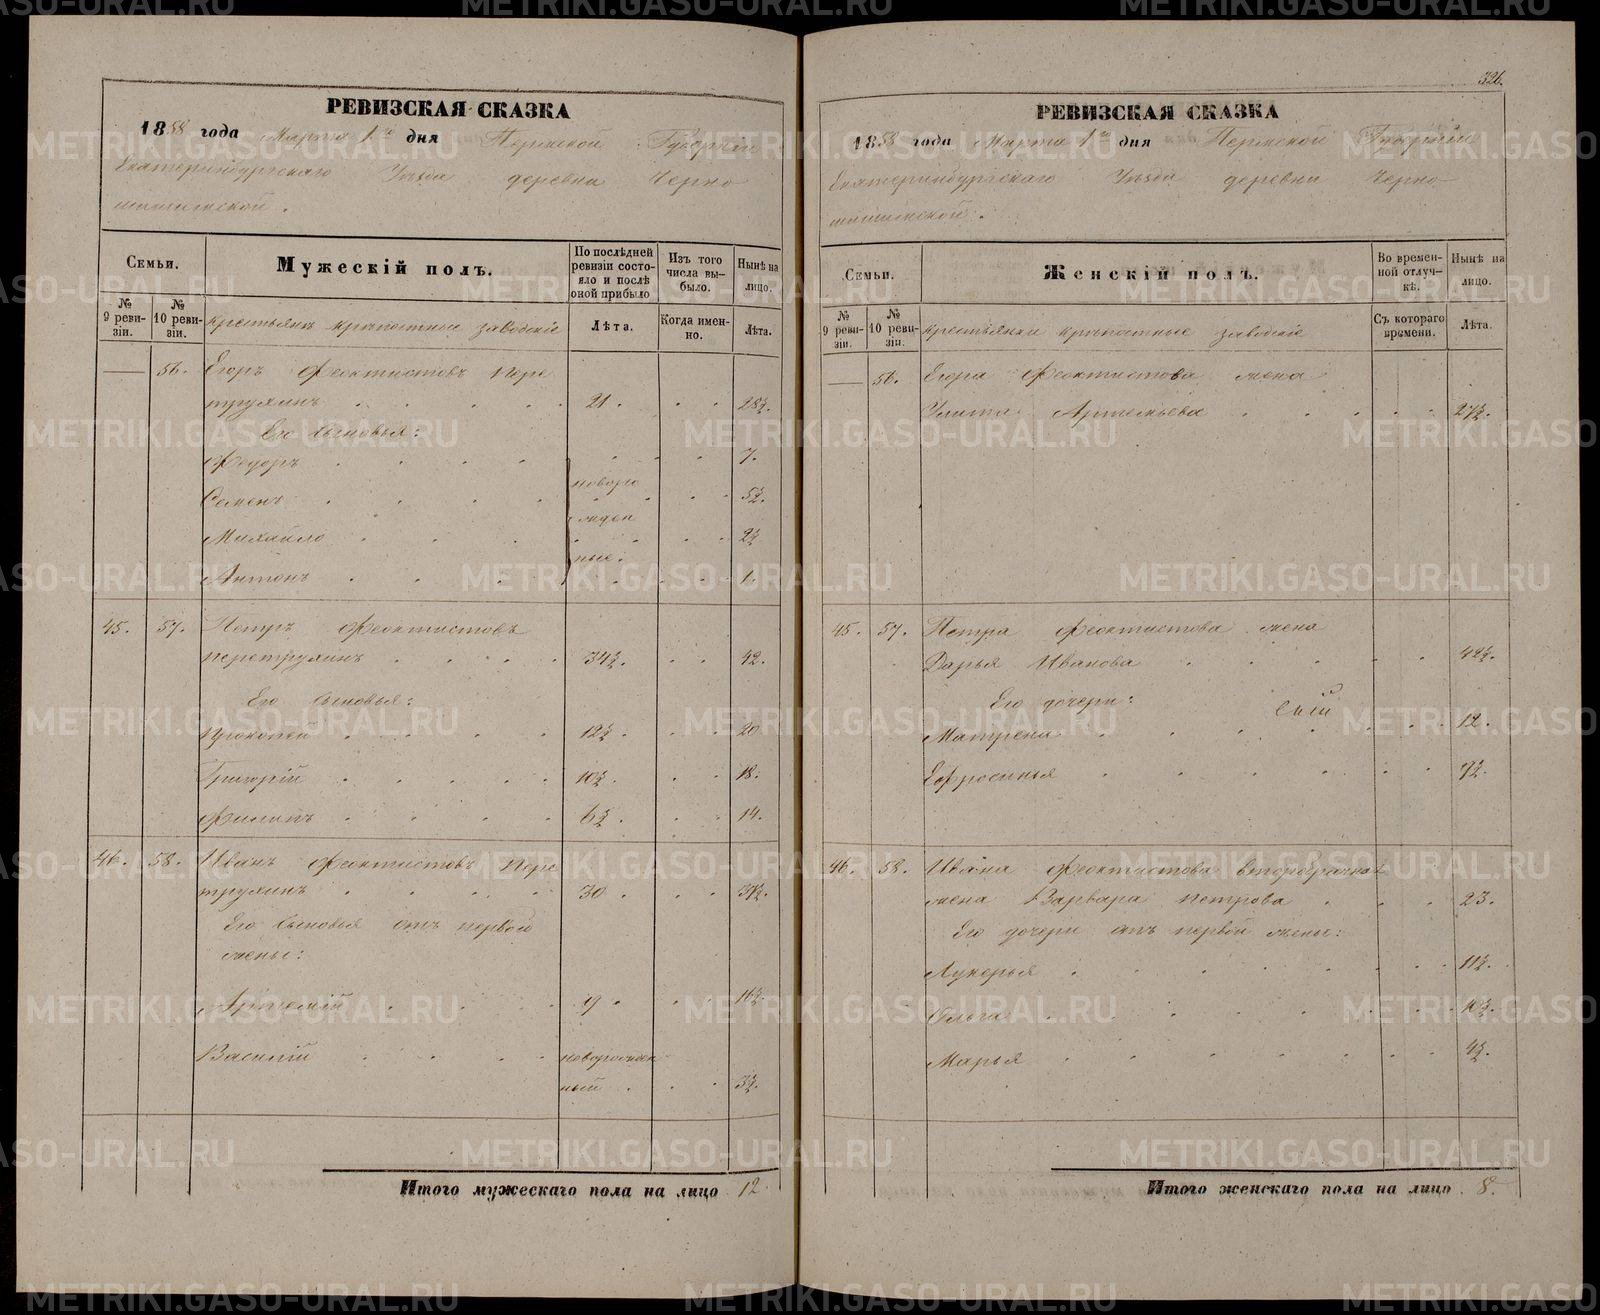 РЕВИЗСКАЯ СКАЗКА
1858 года Марта 1го дня Пермской Губернии
Екатеринбургскаго Уѣзда деревни Черно
шишимской.
Семьи.
Мужескій полъ.
По послѣдней ревизіи состояло и послѣ оной прибыло
Изъ того числа выбыло.
Нынѣ на лицо.
№ 9 ревизіи.
№ 10 ревизіи.
крестьяне крѣпостные заводскіе
Лѣта.
Когда именно.
Лѣта.
— 56. Егоръ Феоктистовъ Пере
трухинъ 21. 28½.
Его сыновья:
Федоръ 7.
Семенъ новоро 5½.
Михайло жден 2½
Антонъ ные. 1.
45. 57. Петръ Феоктистовъ
Перетрухинъ 34½. 42.
Его сыновья:
Прокопей 12½. 20
Григорій 10½. 18.
Филипъ 6½. 14.
46. 58. Иванъ Феоктистовъ Пере
трухинъ 30. 37½.
Его сыновья отъ первой
жены:
Артемій 9. 16½.
Василій новорожден
ный 3½.
Итого мужескаго пола на лицо 12.
326.
РЕВИЗСКАЯ СКАЗКА
1858 года Марта 1го дня Пермской Губерніи
Екатеринбургскаго Уѣзда деревни Черно
шишимской.
Семьи.
Женскій полъ.
Во временной отлучкѣ.
Нынѣ на лицо.
№ 9 ревизіи.
№ 10 ревизіи.
крестьянки крѣпостные заводскіе
Съ котораго времени.
Лѣта.
— 56. Егора Феоктистова жена
Улита Артемьева 27½.
45. 57. Петра Феоктистова жена
Дарья Иванова 42½.
Его дочери:
Матрена 12.
Ефросинья 7½.
46. 58. Ивана Феоктистова второбрачная
жена Варвара Петрова 23.
Его дочери отъ первой жены:
Лукерья 11½.
Ольга 10½.
Марья 4½.
Итого женскаго пола на лицо 8.
METRIKI.GASO-URAL.RU